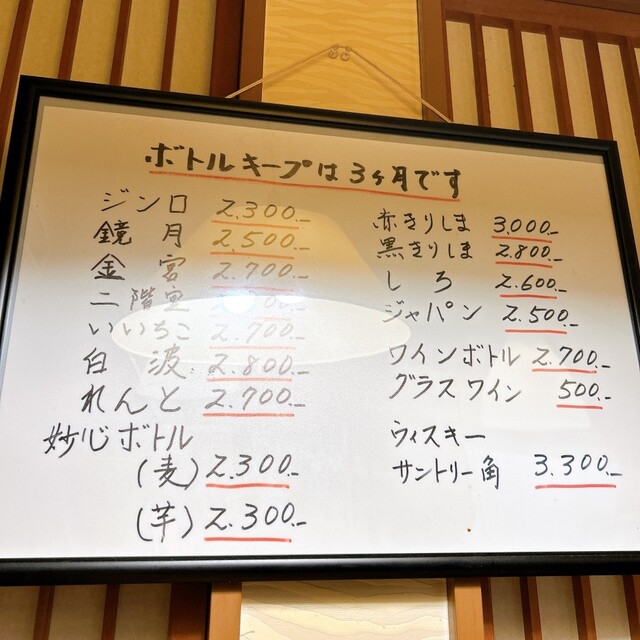 ボトルキープは3ヶ月です
ジンロ 2.300.-
鏡月 2,500.-
金宮 2.700.-
二階堂
いいちこ 2.700.-
白波 2.800.-
れんと 2.700.-
妙心ボトル
(麦) 2.300.-
(芋) 2.300.-
赤きりしま 3,000.-
黒きりしま 2.800.-
しろ 2.600.-
ジャパン 2.500.-
ワインボトル 2.700.-
グラスワイン 500.-
ウィスキー
サントリー角 3.300.-